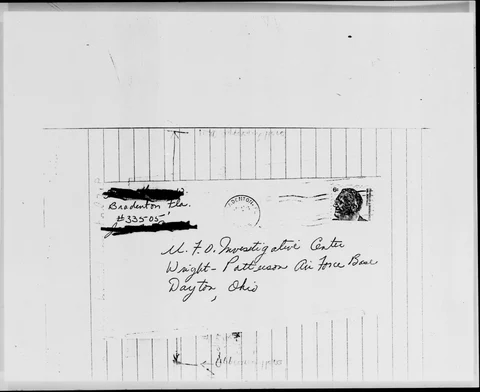 Bradenton Fla.
#33505
U.F.O. Investigative Center
Wright-Patterson Air Force Base
Dayton, Ohio